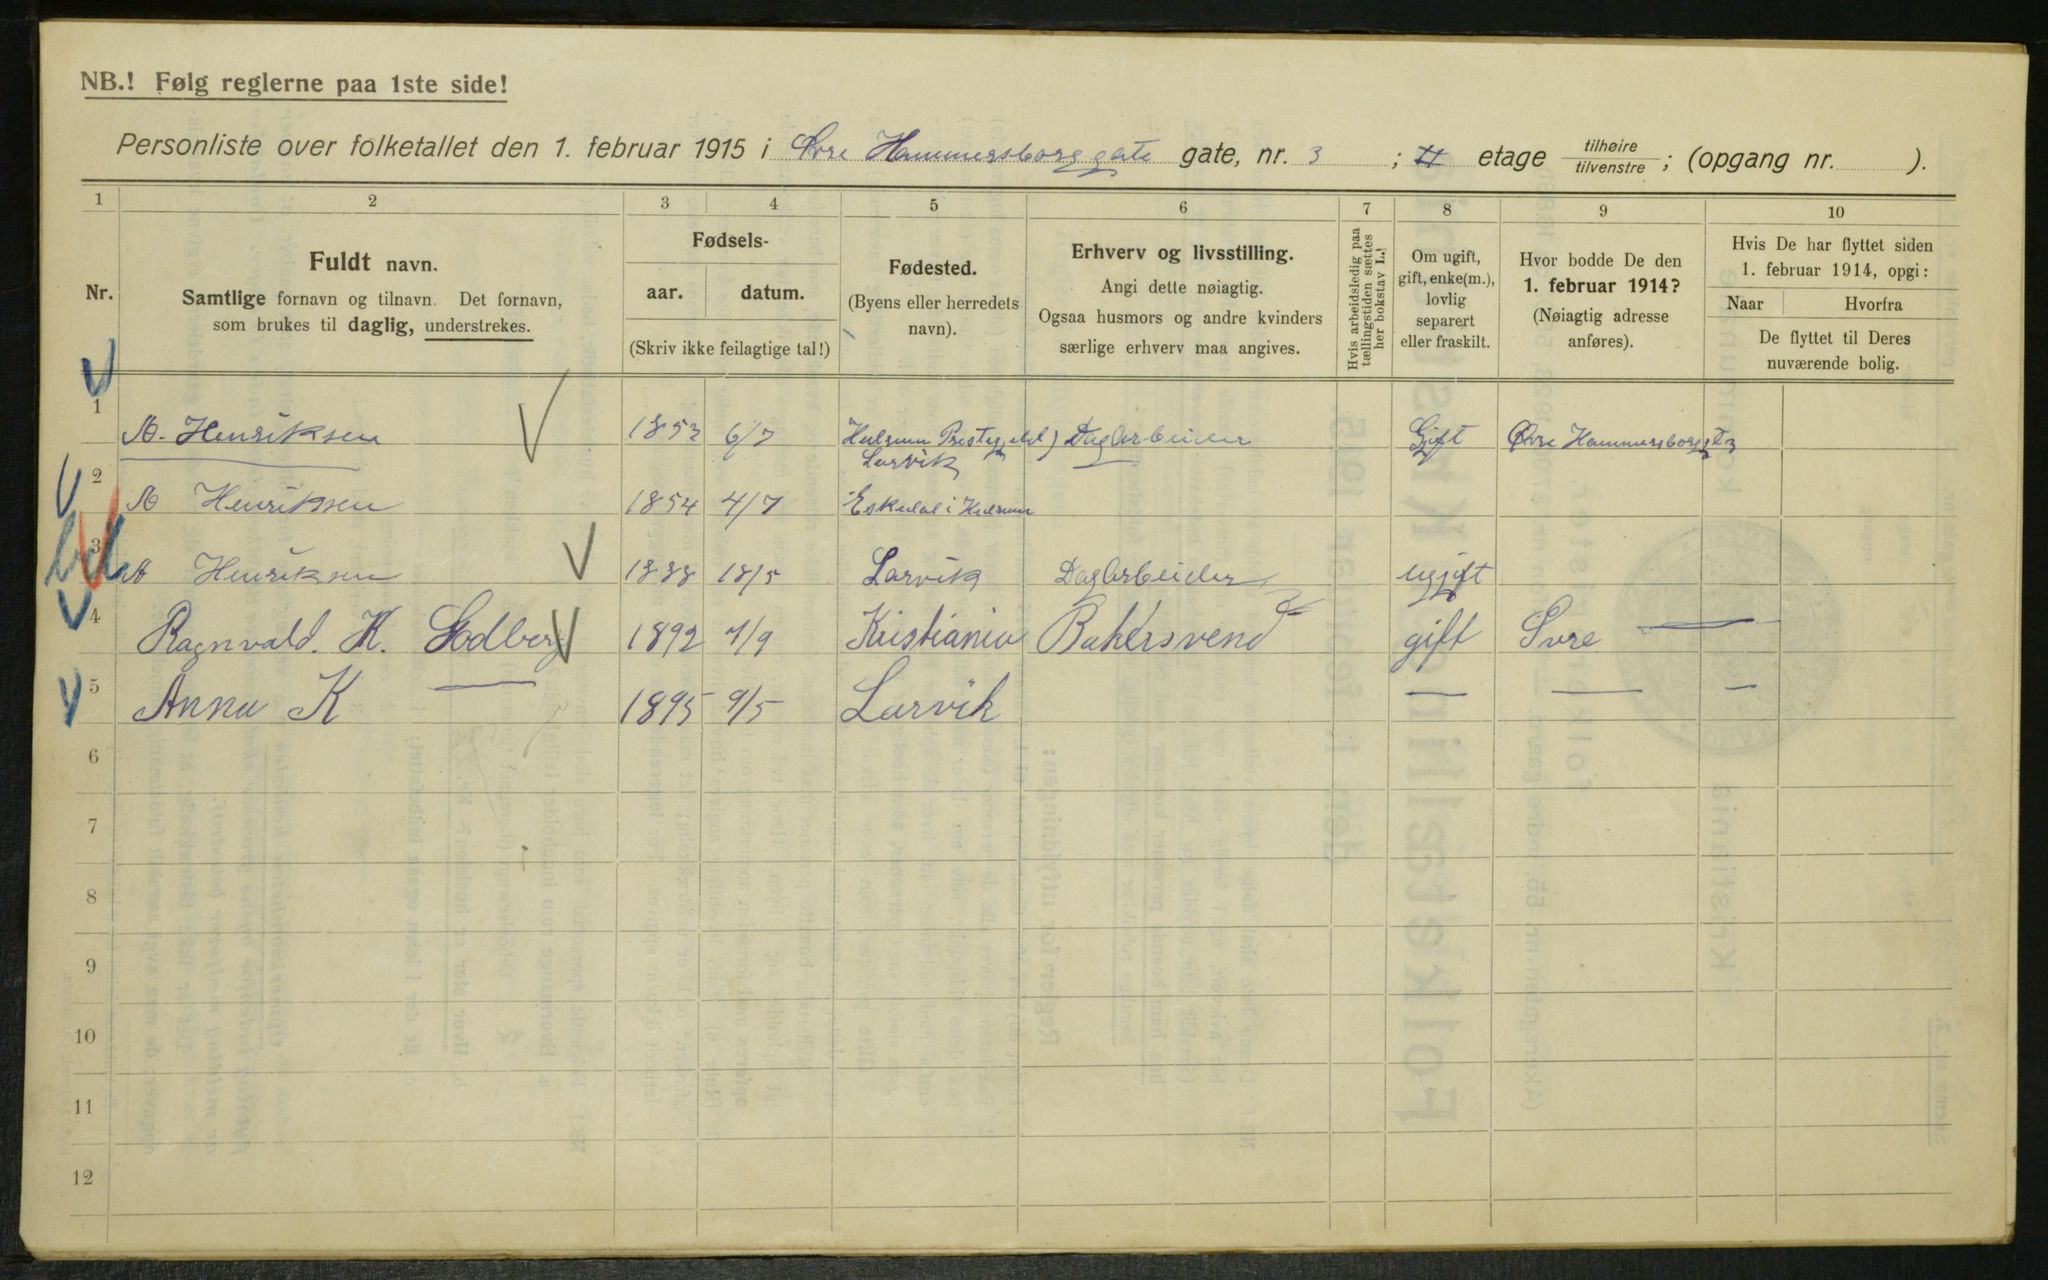 NB.! Følg reglerne paa 1ste side!
Personliste over folketallet den 1. februar 1915 i Øvre Hammersborggate gate, nr. 3 ; II etage tilhøire tilvenstre ; (opgang nr. ).
1 2 3 4 5 6 7 8 9 10
Nr.
Fuldt navn.
Samtlige fornavn og tilnavn. Det fornavn,
som brukes til daglig, understrekes.
Fødsels-
aar. datum.
(Skriv ikke feilagtige tal!)
Fødested.
(Byens eller herredets
navn).
Erhverv og livsstilling.
Angi dette nøiagtig.
Ogsaa husmors og andre kvinders
særlige erhverv maa angives.
Hvis arbeidsledig paa
tællingstiden sættes
her bokstav L.!
Om ugift,
gift, enke(m.),
lovlig
separert
eller fraskilt.
Hvor bodde De den
1. februar 1914?
(Nøiagtig adresse
anføres).
Hvis De har flyttet siden
1. februar 1914, opgi:
Naar Hvorfra
De flyttet til Deres
nuværende bolig.
1 Henriksen 1853 6/7 Hedrum Prestegjeld) Dagarbeider Gift Øvre Hammersborggt 3
Larvik
2 Henriksen 1854 4/7 Eskedal i Hedrum
3 Henriksen 1888 18/5 Larvik Dagarbeider ugift
4 Ragnvald. K. Godberg 1892 7/9 Kristiania Bakersvend gift Øvre —
5 Anna K — 1895 9/5 Larvik — — —
6
7
8
9
10
11
12